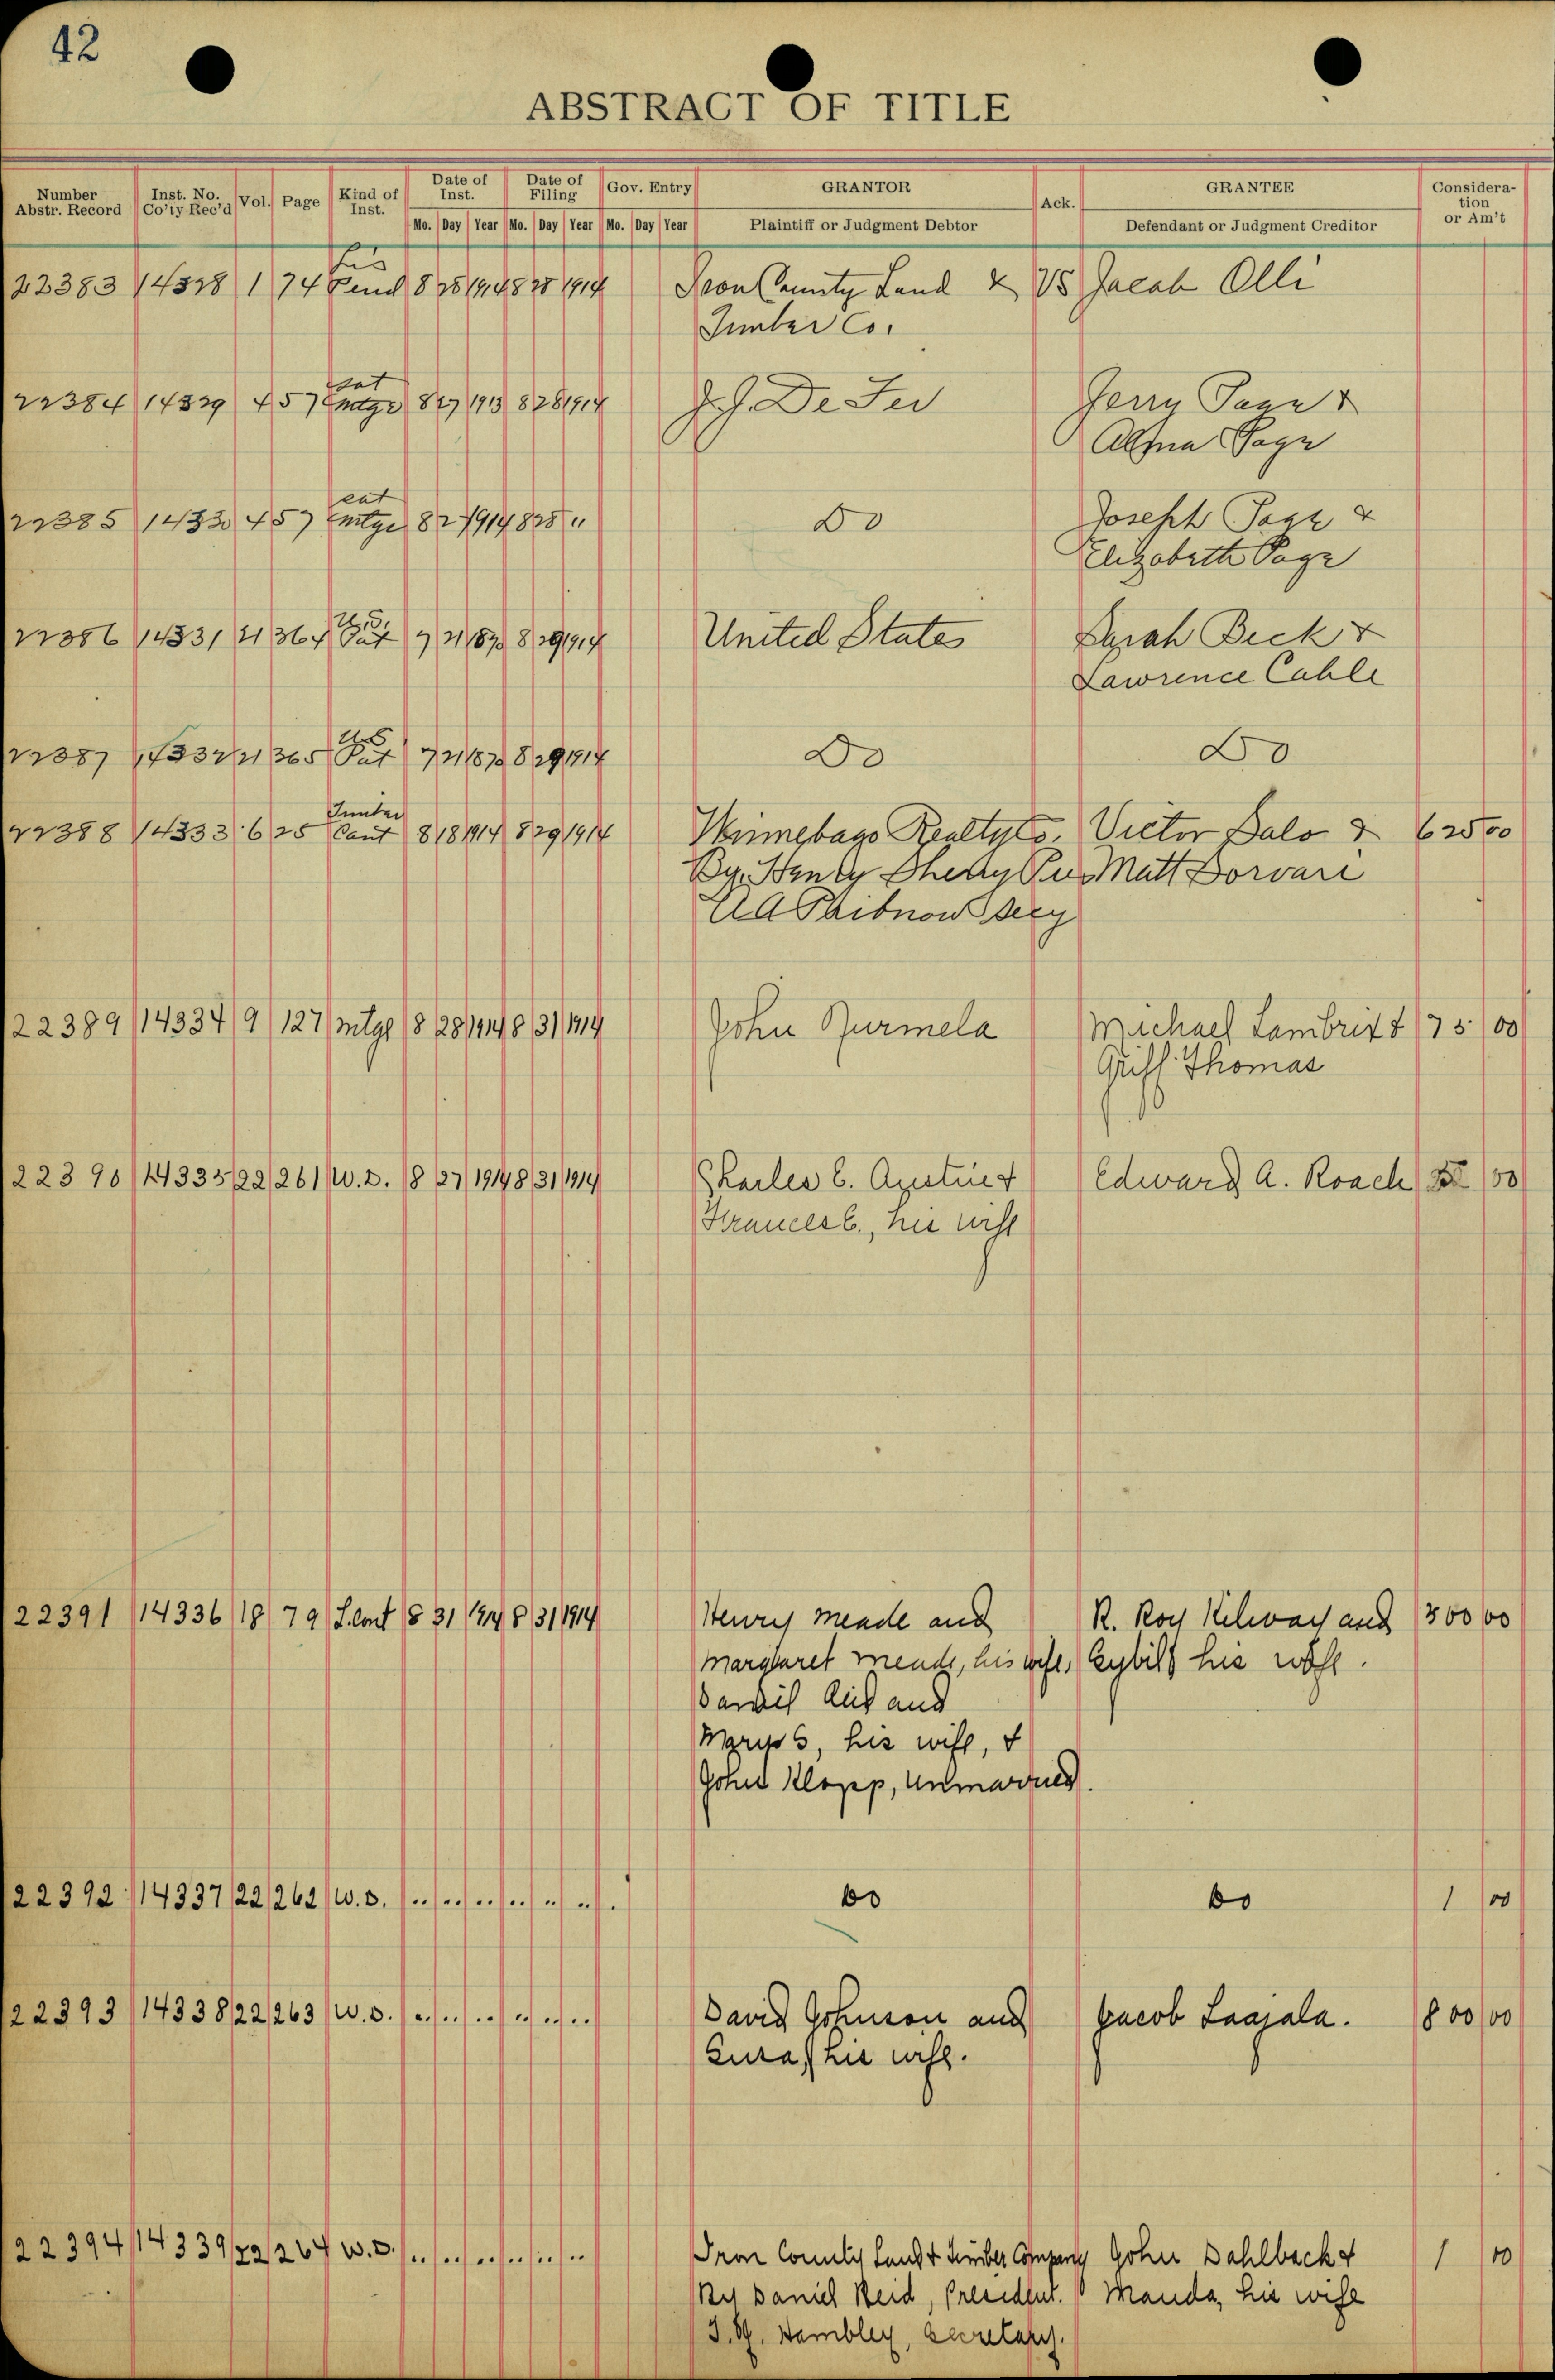 42
ABSTRACT OF TITLE
Number Abstr. Record Inst. No. Co'ty Rec'd Vol. Page Kind of Inst. Date of Inst. Date of Filing Gov. Entry GRANTOR Ack. GRANTEE Considera-tion or Am't
Mo. Day Year Mo. Day Year Mo. Day Year Plaintiff or Judgment Debtor Defendant or Judgment Creditor
Lis
22383 14328 1 74 Pend 8 28 1914 8 28 1914 Iron County Land & VS Jacob Olli
Lumber Co.
sat
22384 14329 4 57 mtge 8 27 1913 8 28 1914 Jerry Page &
Alma Page
sat
22385 14330 4 57 mtge 8 27 1914 8 28 " Do Joseph Page &
Elizabeth Page
U.S.
22386 14331 21 364 Pat 7 21 1873 8 29 1914 United States Sarah Beck &
Lawrence Cahle
U.S
22387 14332 21 365 Pat 7 21 1873 8 29 1914 Do Do
Timber
22388 14333 6 25 Cont 8 18 1914 8 29 1914 Winnebago Realty Co. Victor Salo & 625 00
By. Henry Sherry Pres Matt Dorvari
AA Secy
22389 14334 9 127 mtge 8 28 1914 8 31 1914 John Purmela Michael Lambrix & 75 00
Griff Thomas
22390 14335 22 261 W.D. 8 27 1914 8 31 1914 Charles E. Austin & Edward A. Roach 00
Frances E., his wife
22391 14336 18 79 L.Cont 8 31 1914 8 31 1914 Henry Meade and R. Roy Kelway and 300 00
Margaret Meade, his wife, Sybill his wife.
Daniel Reid and
Mary S, his wife, &
John Klopp, unmarried.
22392 14337 22 262 W.D. " " " " " " Do Do 1 00
22393 14338 22 263 W.D. " " " " " " David Johnson and Jacob Laajala. 800 00
his wife.
22394 14339 22 264 W.D. " " " " " " Iron County Land & Timber Company John Dahlback & 1 00
By Daniel Reid, President. Manda, his wife
Hambley, Secretary.